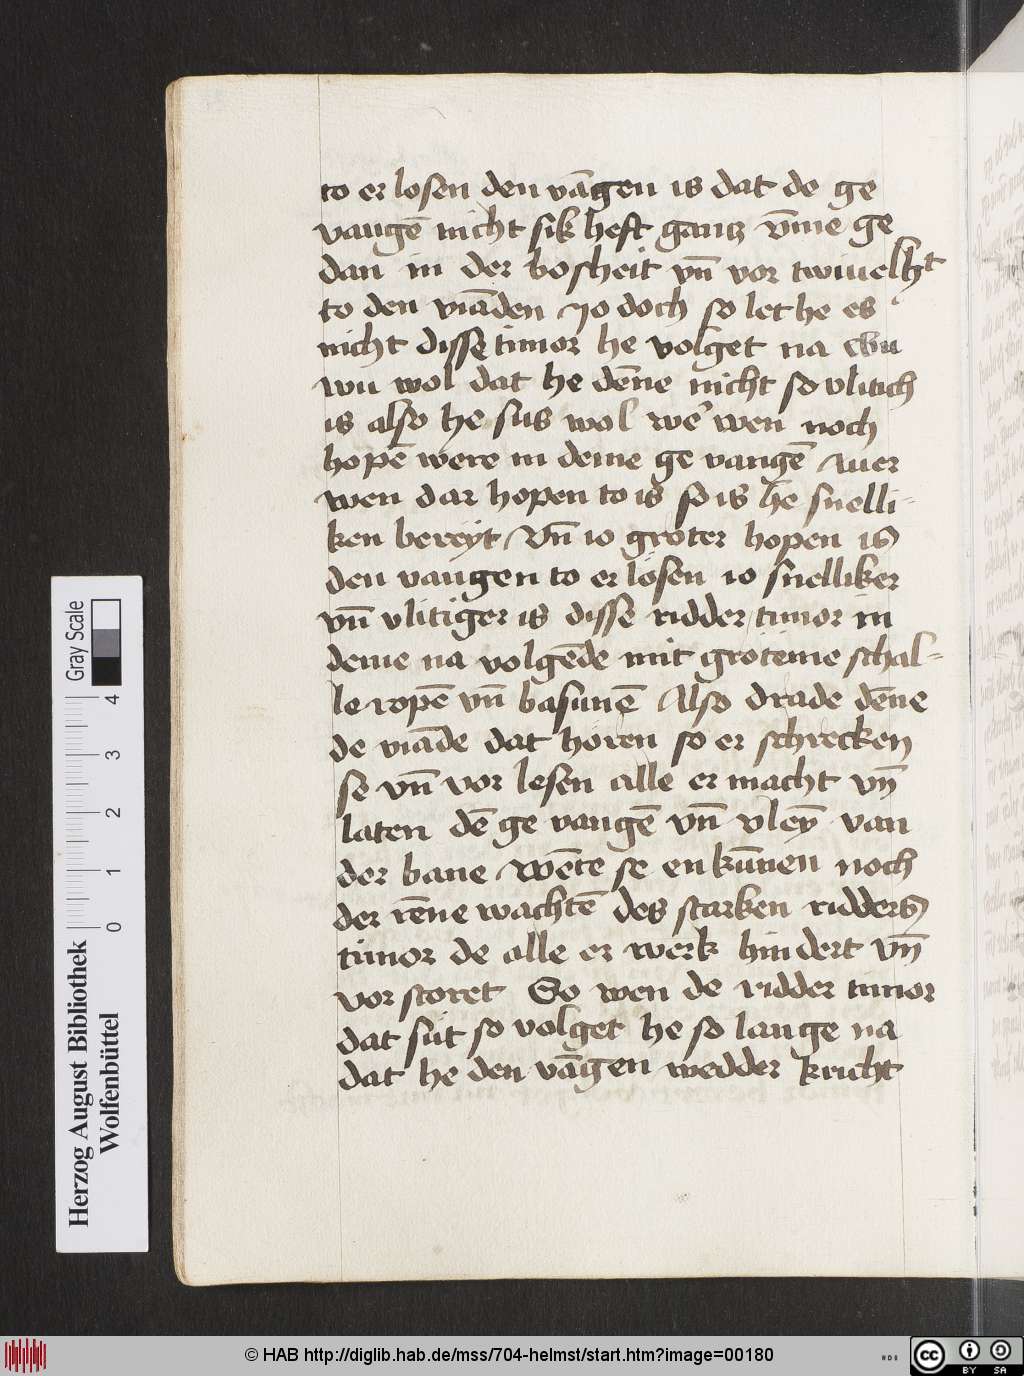 to er losen den vāgen is dat de ge
vangē nicht sik heft gantz vm̄e ge
dan in der bosheit vn̄ vor twiuelht
to den viāden Jo doch so let he es
nicht disse timor he volget na
wu wol dat he dēne nicht so vlitich
is also he sus wol we' wen noch
hopē were in deme ge vangē Auer
wen dar hopen to is so is he snelli-
ken bereyt vn̄ io groter hopen is
den vangen to er losen io snelliker
vn̄ vlitiger is disse ridder timor in
deme na volgēde mit groteme schal-
le ropē vn̄ basunē Also drade dēne
de viāde dat horen so er schrecken
se vn̄ vor lesen alle er macht vn̄
laten dē ge vangē vn̄ vlēy van
der bane wēte se en kūnen noch
der rēne wachtē des starken ridders
timor de alle er werk hindert vn̄
vor storet So wen de ridder timor
dat sut so volget he so lange na
dat he den vāgen wedder kricht
Herzog August Bibliothek
Wolfenbüttel
0 1 2 3 4
Gray Scale
© HAB http://diglib.hab.de/mss/704-helmst/start.htm?image=00180
HAB
cc BY SA